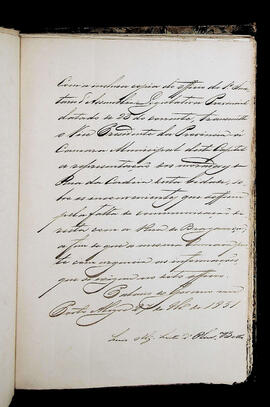 Com a inclusa copia do officio do 1º Secre
tario d'Assemblea Legislativa Provincial
datado de 23 do corrente, transmitte
o Vice Presidente da Provincia á
Camara Municipal desta Capital
a representação dos moradores da
Rua da Cadeia desta Cidade, so
bre os inconvenientes, que soffrem
pela falta de communicação di
recta com a Rua de Bragança,
a fim de que a mesma Camara
de com urgencia as informações
que se exigem no dito officio.
Palacio do Governo em
Porto Alegre 27 de 9bro de 1851
Luis Alz. Leite d'Olivª Bello